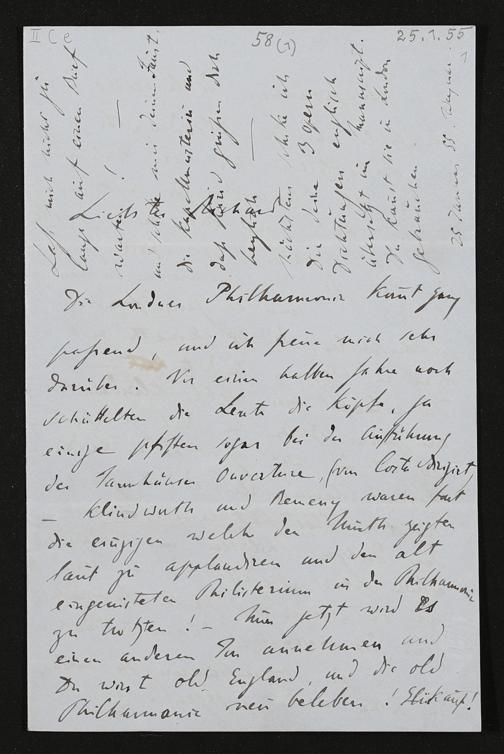 II C e
58 (1)
25.1.55
1
Liebster Richard
Die Londner Philharmonie kömt ganz
passend, und ich freue mich sehr
darüber. Vor einem halben Jahre noch
schüttelten die Leute die Köpfe, ja
einige pfiffen sogar bei der Aufführung
der Tannhäuser Ouverture, (von Costa dirigirt)
– Klindworth und Remeny waren fast
die einzigen welche den Muth zeigten
laut zu applaudiren und den alt
eingenisteten Philisterium in der Philharmonie
zu trotzen! – Nun jetzt wird Es
einen anderen Ton annehmen und
Du wirst old England, und die old
Philharmonie neu beleben! Glück auf!
Lass mich nicht zu
lange auf einen Brief
warten!
und schicke mir deinen Faust.
die Kapellmeisterin und
grüssen Dich
herzlich
Nächstens schicke ich
Dir Deine 3 Opern
Dichtungen englisch
übersetzt im Manuscript.
Du kannst sie in London
gebrauchen.
25 Januar 55. Weymar.